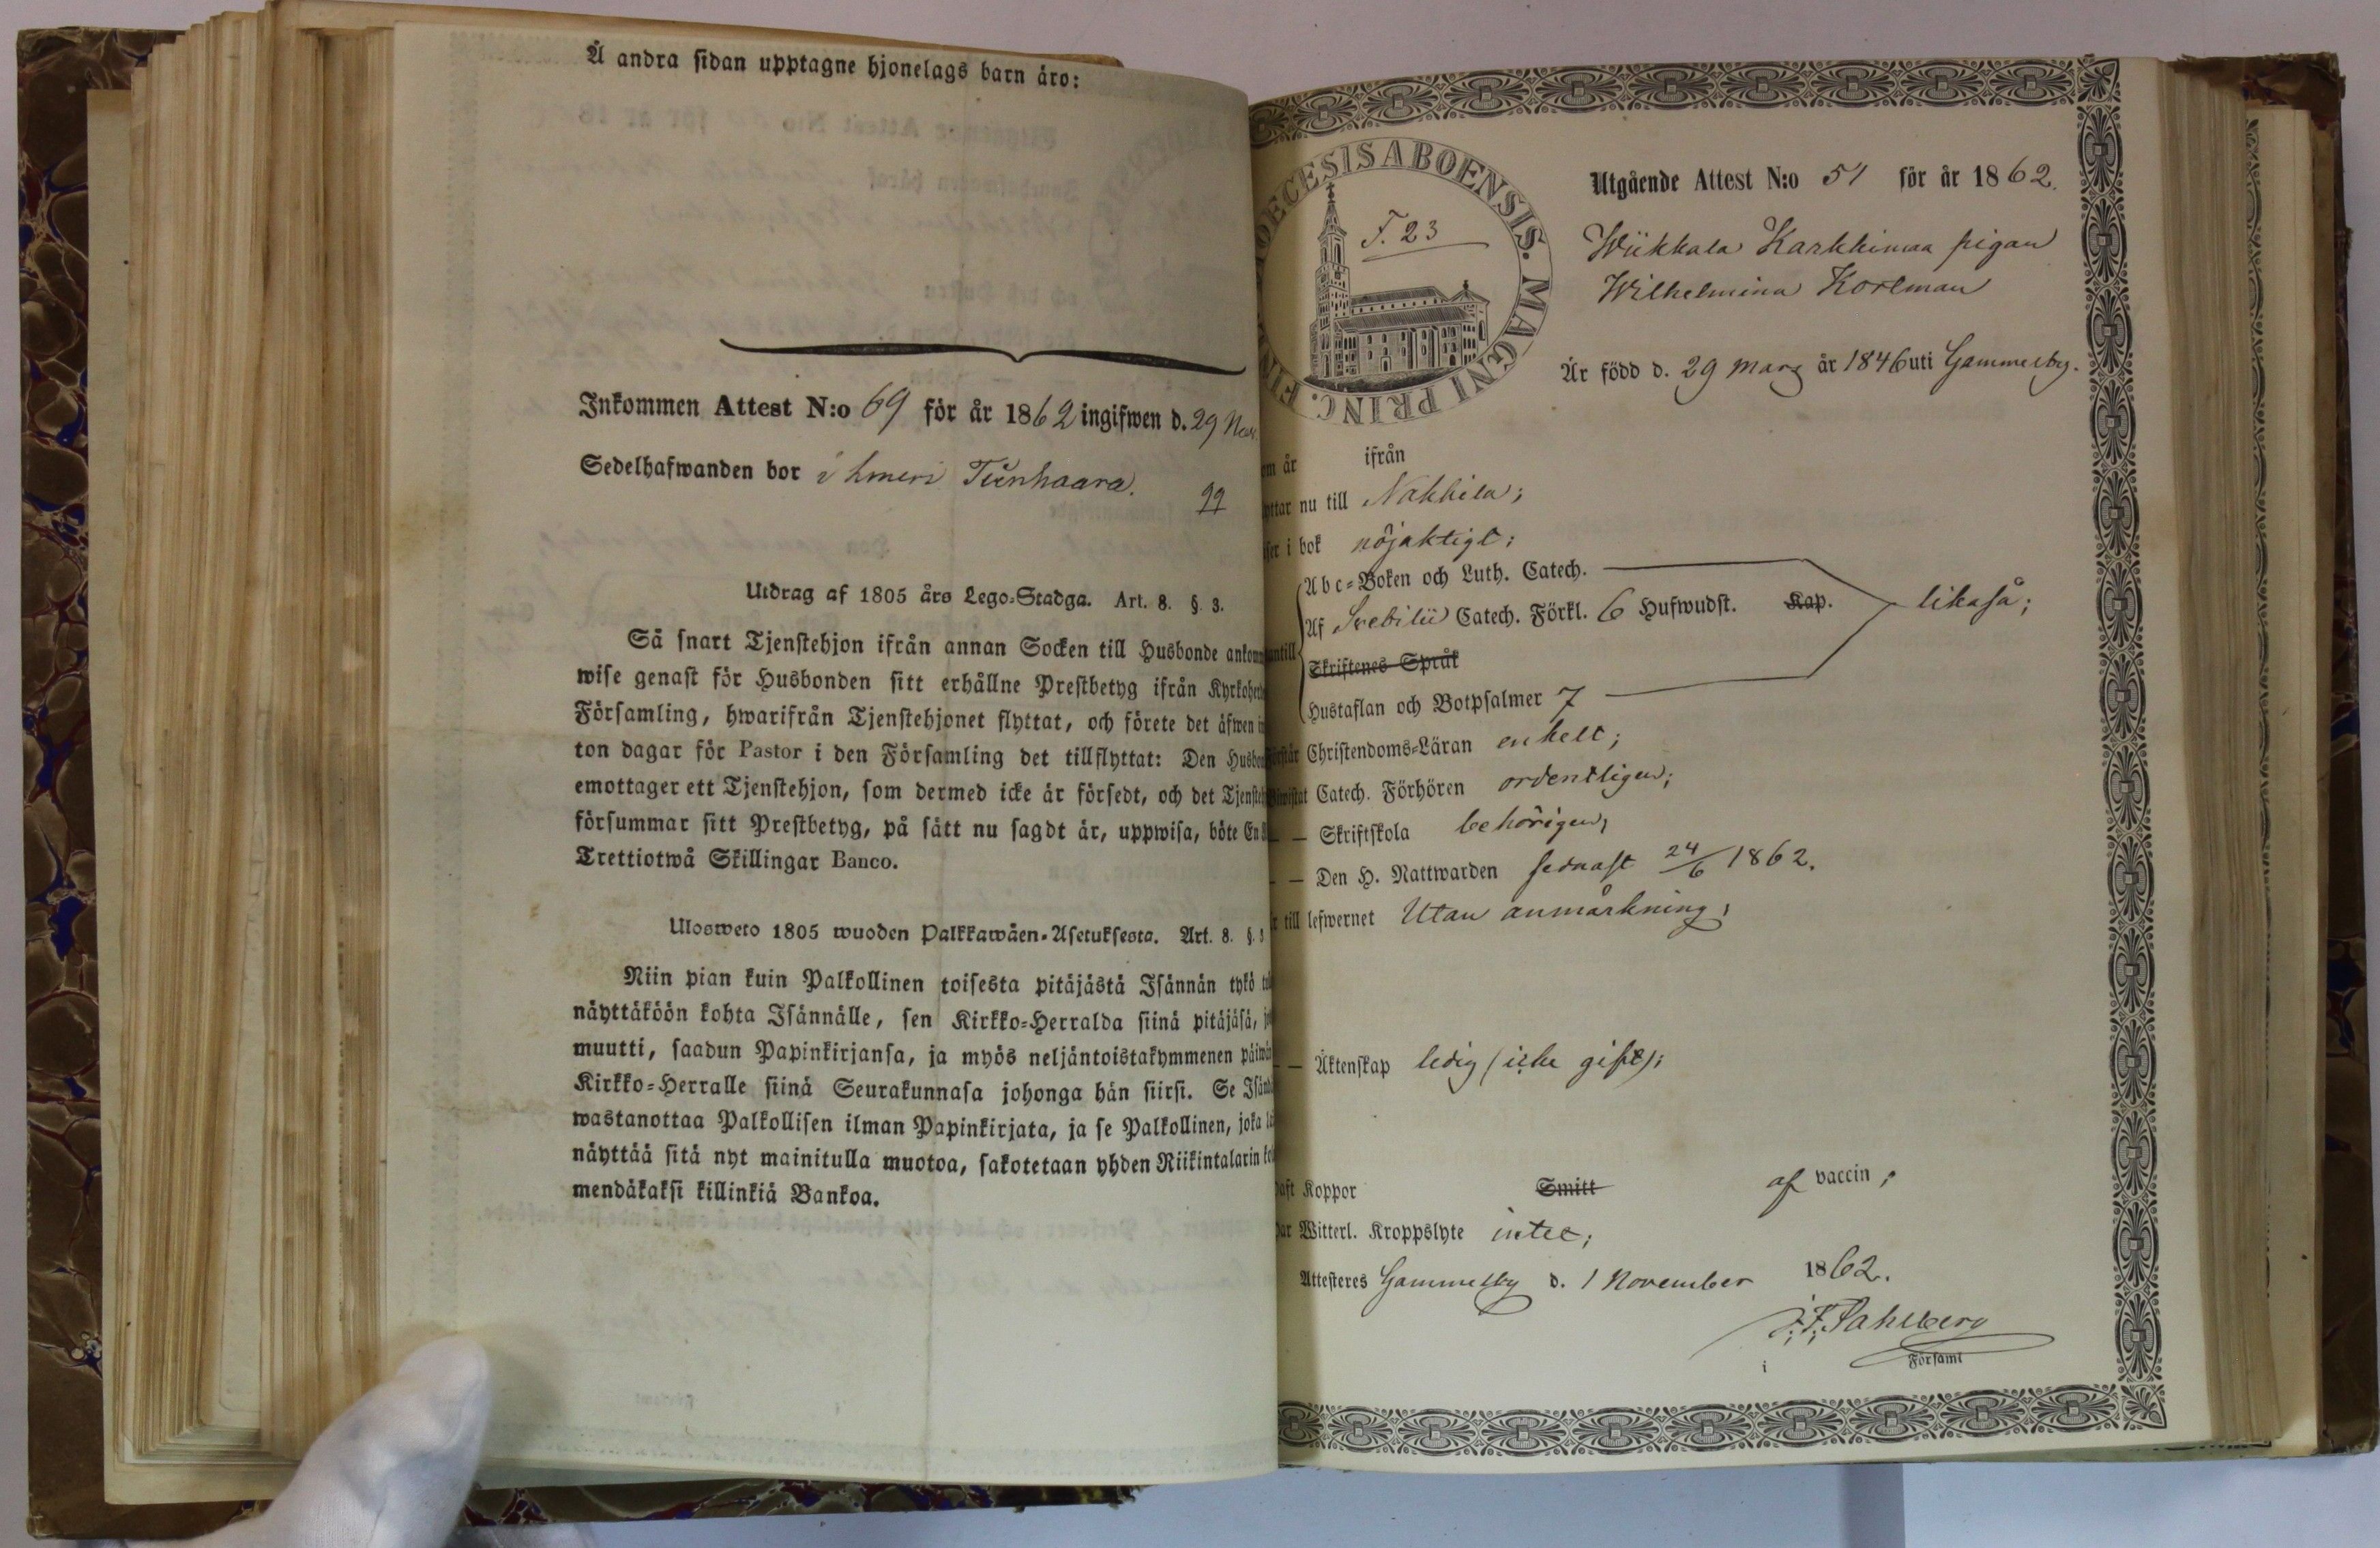 Å andra sidan upptagne hjonelags barn äro:
Inkommen Attest N:o 69 för år 1862 ingifwen d. 29 Nov.
Sedelhafwanden bor i
Utdrag af 1805 års Lego-Stadga. Art. 8. §. 3.
Så snart Tjenstehjon ifrån annan Socken till Husbonde ankom
wise genast för Husbonden sitt erhållne Prestbetyg ifrån Kyrkoher
Församling, hwarifrån Tjenstehjonet flyttat, och förete det äfwen in
ton dagar för Pastor i den Församling det tillflyttat: Den Husbon
emottager ett Tjenstehjon, som dermed icke är försedt, och det Tjensteh
försummar sitt Prestbetyg, på sätt nu sagdt är, uppwisa, böte En
Trettiotwå Skillingar Banco.
Ulosweto 1805 wuoden Palkkawäen-Asetuksesta. Art. 8. §. 3
Niin pian kuin Palkollinen toisesta pitäjästä Isännän tykö
näyttäköön kohta Isännälle, sen Kirkko-Herralda siinä pitäjäsä,
muutti, saadun Papinkirjansa, ja myös neljäntoistakymmenen päiwä
Kirkko-Herralle siinä Seurakunnasa johonga hän siirsi. Se Isänd
wastanottaa Palkollisen ilman Papinkirjata, ja se Palkollinen, joka
näyttää sitä nyt mainitulla muotoa, sakotetaan yhden Riikintalarin
mendäkaksi killinkiä Bankoa.
OECESIS ABOENSIS. MAGNI PRINC. FIN
F. 23
Utgående Attest N:o 51 för år 1862.
Wiikkala Karkkimaa pigan
Wilhelmina Kortman
Är född d. 29 Mars år 1846 uti Gammelby.
om år ifrån
yttar nu till Nakkila;
ser i bok nöjaktigt;
Abc-Boken och Luth. Catech.
Af Svebilii Catech. Förkl. 6 Hufwudst. Kap. likaså;
antill
Skriftenes Språk
Hustaflan och Botpsalmer 7
örstår Christendoms-Läran enkelt;
wistat Catech. Förhören ordentligen;
— — Skriftskola behörigen;
— — Den H. Nattwarden sednast 24/6 1862.
r till lefwernet Utan anmärkning;
— — Äktenskap ledig (icke gift);
haft Koppor Smitt af vaccin;
har Witterl. Kroppslyte intet;
Attesteras Gammelby d. 1 November 1862.
J. F. Sahlberg
i Församl